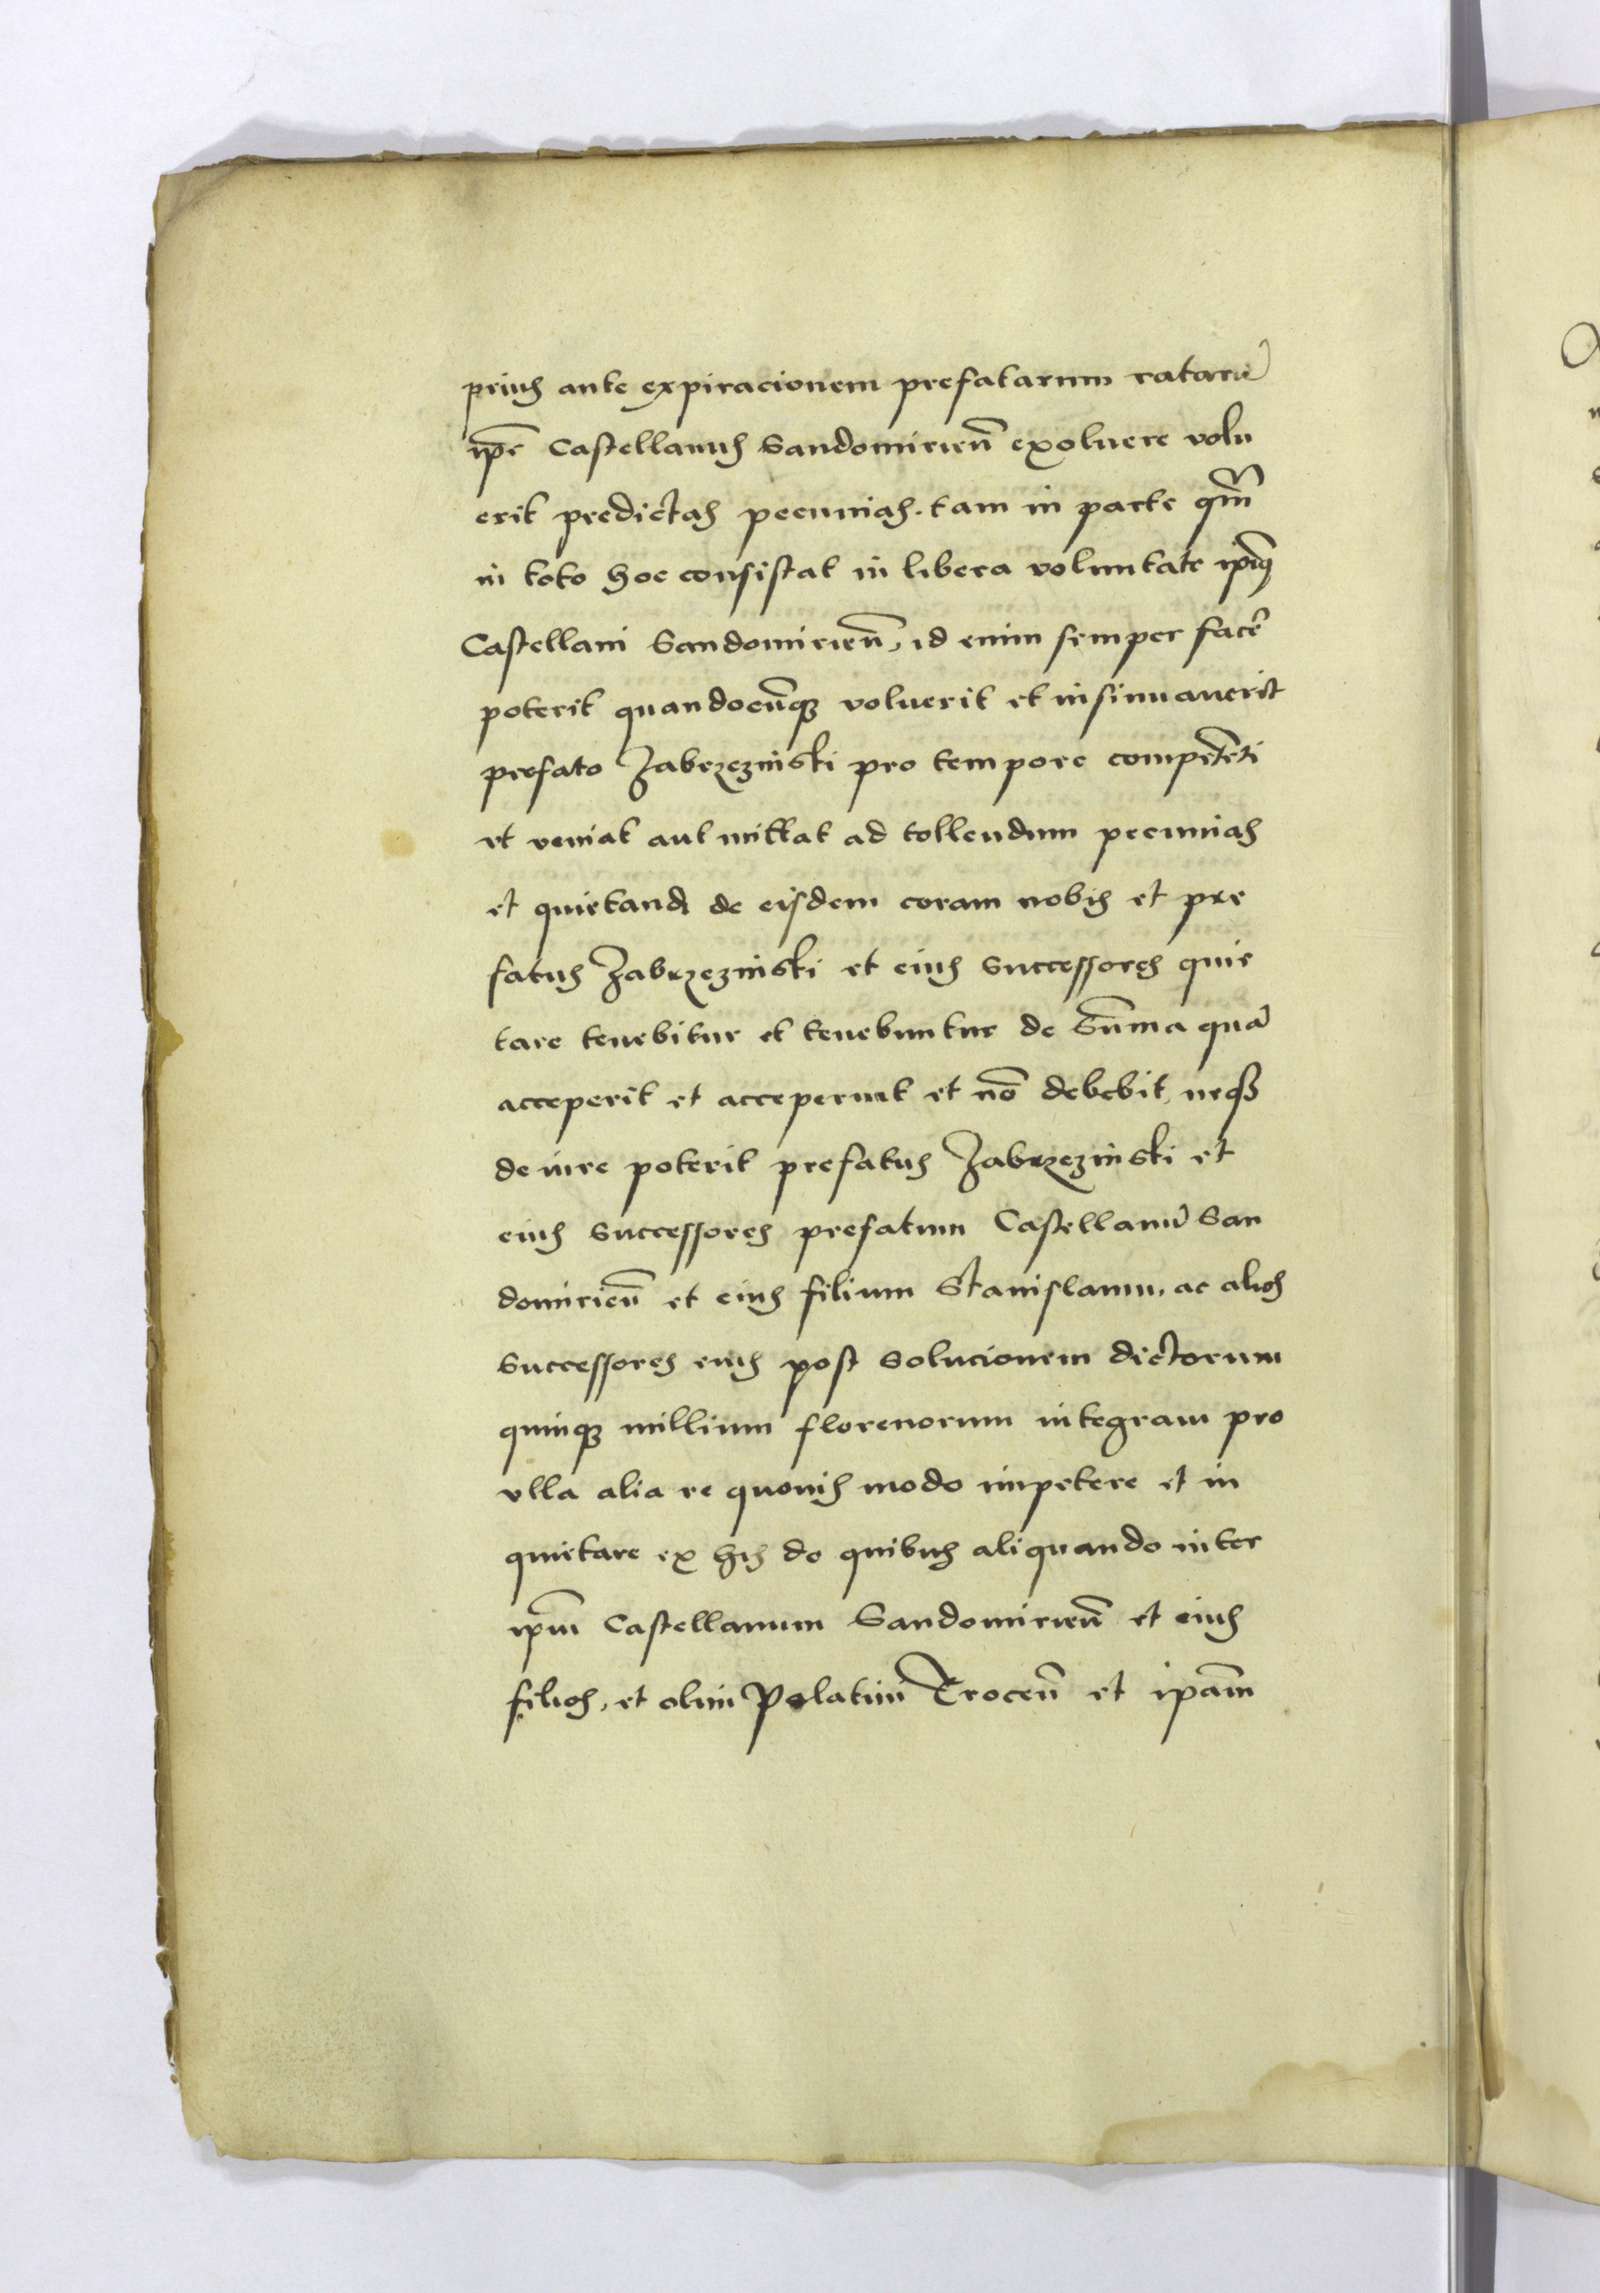 prius ante expiracionem prefatarum ratarū
ip̄e Castellanus Sandomirien̄ exoluere volu
erit predictas pecunias. tam in parte qm̄
in toto hoc consistat in libera voluntate ip̄ius
Castellani Sandomirien̄, id enim semper facē
poterit quandocūq₃ voluerit et insinuauerit
prefato Zabrzezinski pro tempore competēti
vt veniat aut mittat ad tollendum pecunias
et quietand de eisdem coram nobis et pre
fatus Zabrzezinski et eius successores quie
tare tenebitur et tenebuntur de Sum̄a quā
acceperit et acceperint et nō debebit neq₃
de iure poterit prefatus Zabrzezinski et
eius successores prefatum Castellanū San
domirien̄ et eius filium Stanislaum, ac alios
successores eius post solucionem dictorum
quinq₃ millium florenorum integram pro
vlla alia re quouis modo impetere et in
quietare ex his de quibus aliquando inter
ip̄m Castellanum Sandomirien̄ et eius
filios, et olim Palatinū Trocen̄ et ip̄am